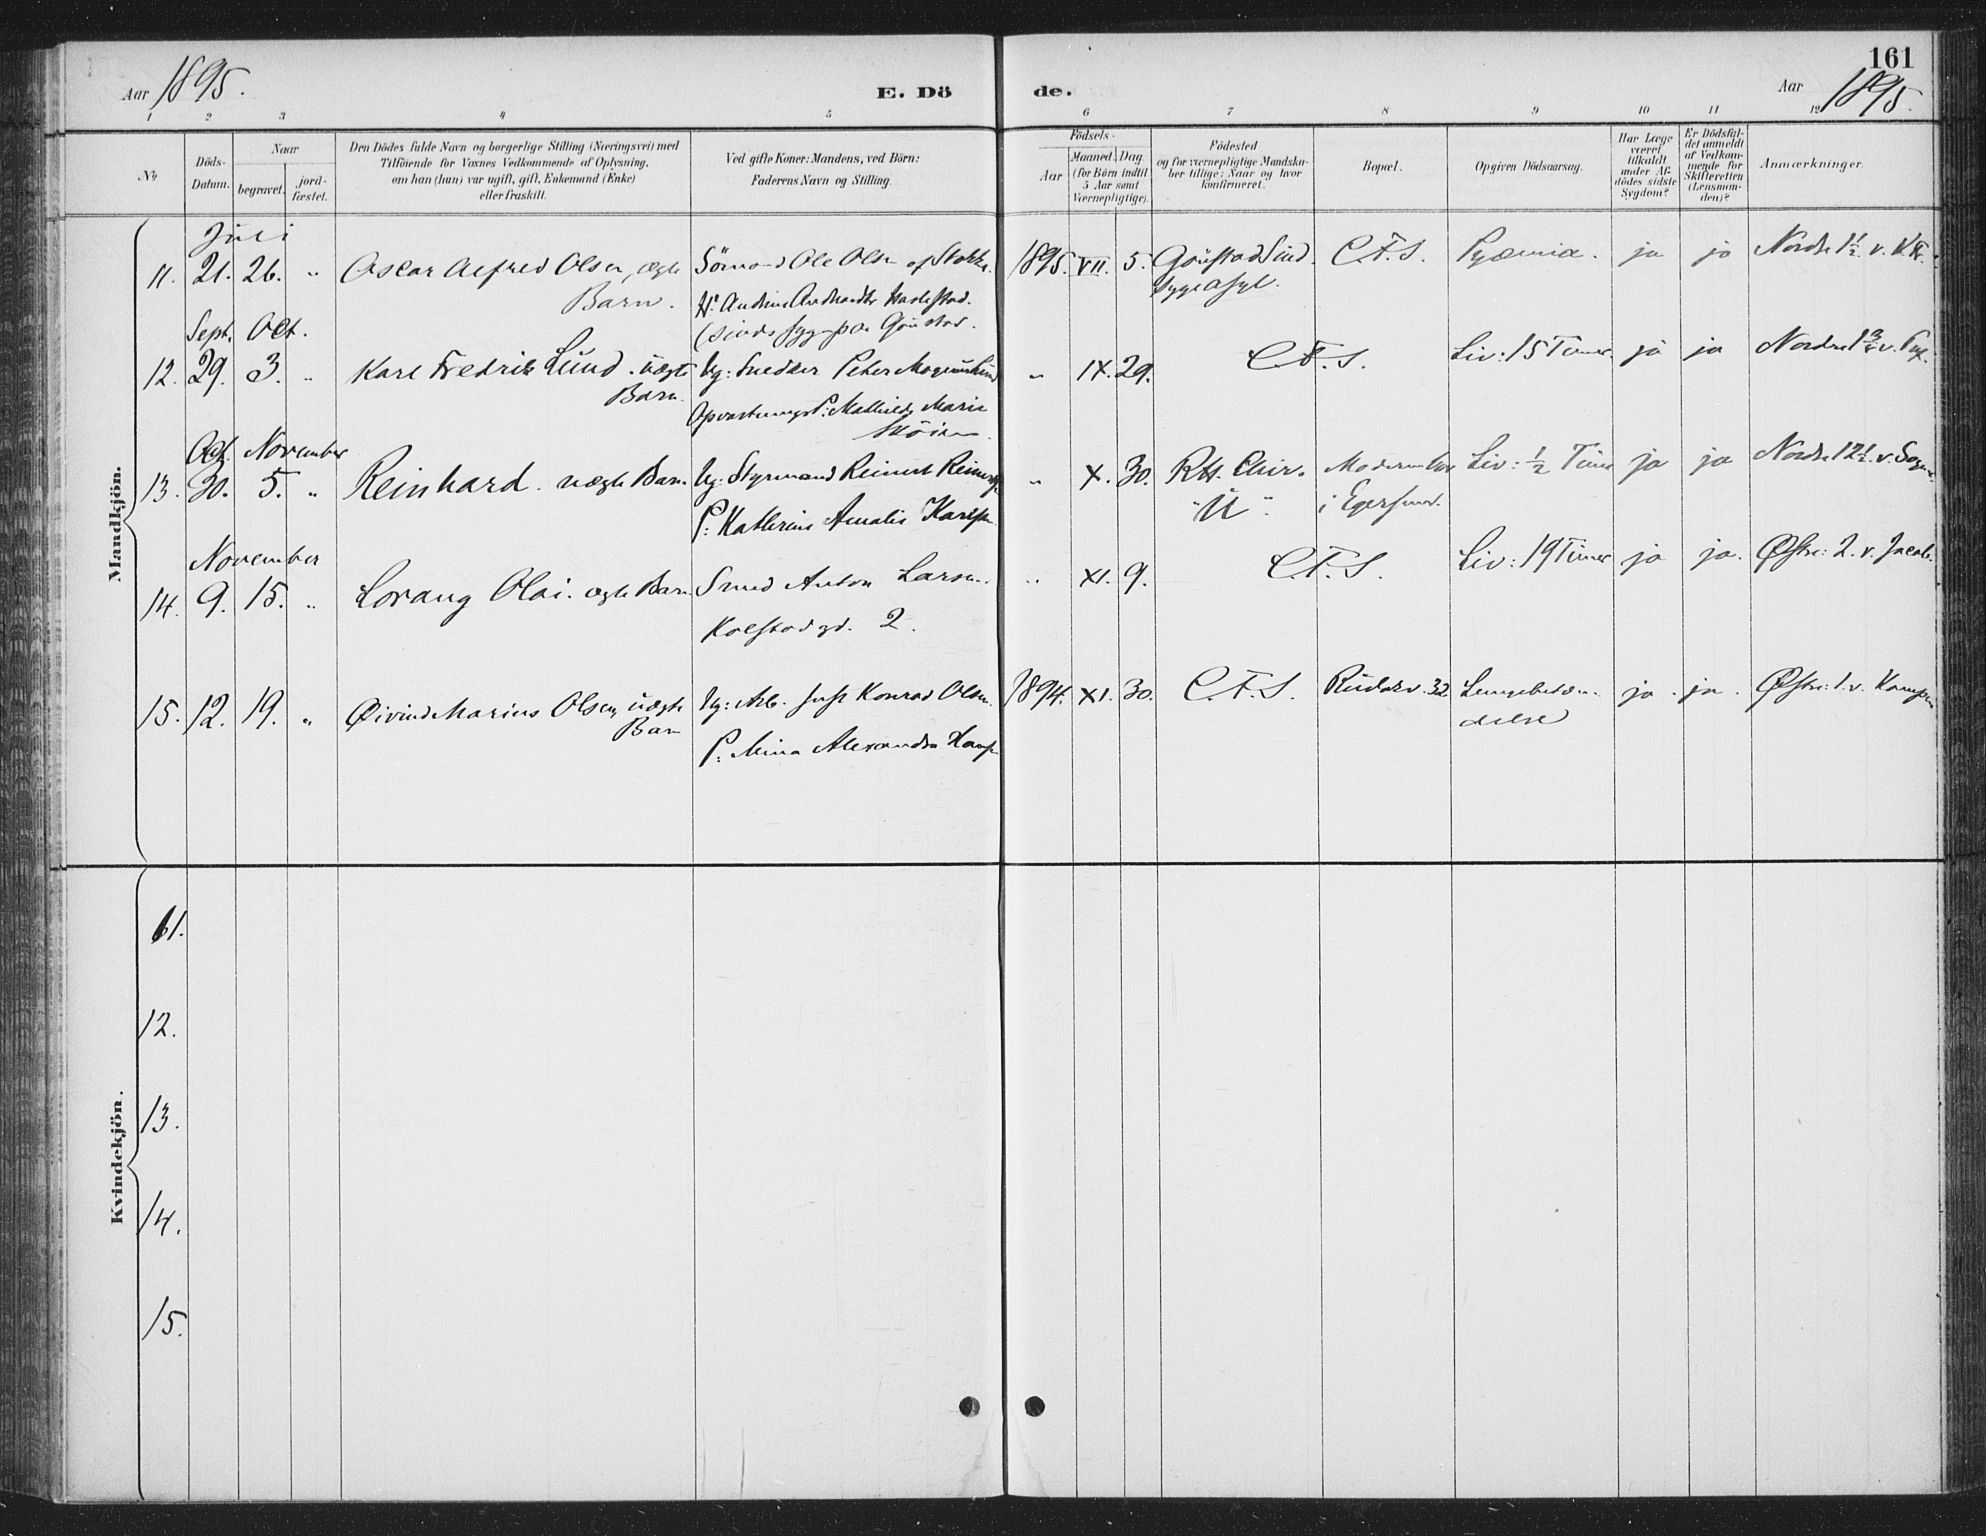 161
Aar 1895.
E. Dö
de.
Aar 1895.
1 2 3 4 5 6 7 8 9 10 11 12
No
Döds-
Datum.
Naar
begravet.
jord-
fæstet.
Den Dödes fulde Navn og borgerlige Stilling (Næringsvei) med
Tilföiende for Voxnes Vedkommende af Oplysning,
om han (hun) var ugift, gift, Enkemand (Enke)
eller fraskilt.
Ved gifte Koner: Mandens, ved Börn:
Faderens Navn og Stilling.
Födsels-
Aar
Maaned. Dag.
(for Börn indtil
5 Aar samt
Værnepligtige).
Födested
og for værnepligtige Mandska-
ber tillige: Naar og hvor
konfirmeret.
Bopæl.
Opgiven Dödsaarsag.
Har Læge
været
tilkaldt
under Af-
dödes sidste
Sygdom?
Er Dödsfal-
det anmeldt
af Vedkom-
mende for
Skifteretten
(Lensman-
den)?
Anmærkninger.
Mandkjön.
Juli
11. 21. 26. " Oscar Alfred Olsen, ægte Sömand Ole Olsen af 1895. VII. 5. C.F.S. Pyæmia. ja ja Nordre 1½ v.
Barn.
Sept. Oct.
12. 29. 3. " Karl Fredrik Lund. uægte Ug: Snedker Peter " IX. 29. C.F.S. Liv: 15 Timer ja ja Nordre 1¾ v.
Barn.
Mathilde Marie
Oct. November
13. 30. 5. " Reinhard. uægte Barn Ug: Styrmand Reinert " X. 30. Liv: ½ Time ja ja Nordre 12½ v.
"U".
i Egersund.
P: Kathrine Amalie
November
14. 9. 15. " Lorang Olai. ægte Barn Smed Anton Larsen. " XI. 9. C.F.S. Liv: 19 Timer ja ja. Østre: 2. v. Jacob.
Kolstadgd. 2.
15. 12. 19. " Øivind Marius Olsen, uægte Ug: Arb. Konrad Olsen. 1894. XI. 30. C.F.S. Rudsv. 32 Lungebetæn- ja. ja. Østre: 1. v.
Barn
delse
P: Mina Alexandra
Kvindekjön.
11.
12.
13.
14.
15.